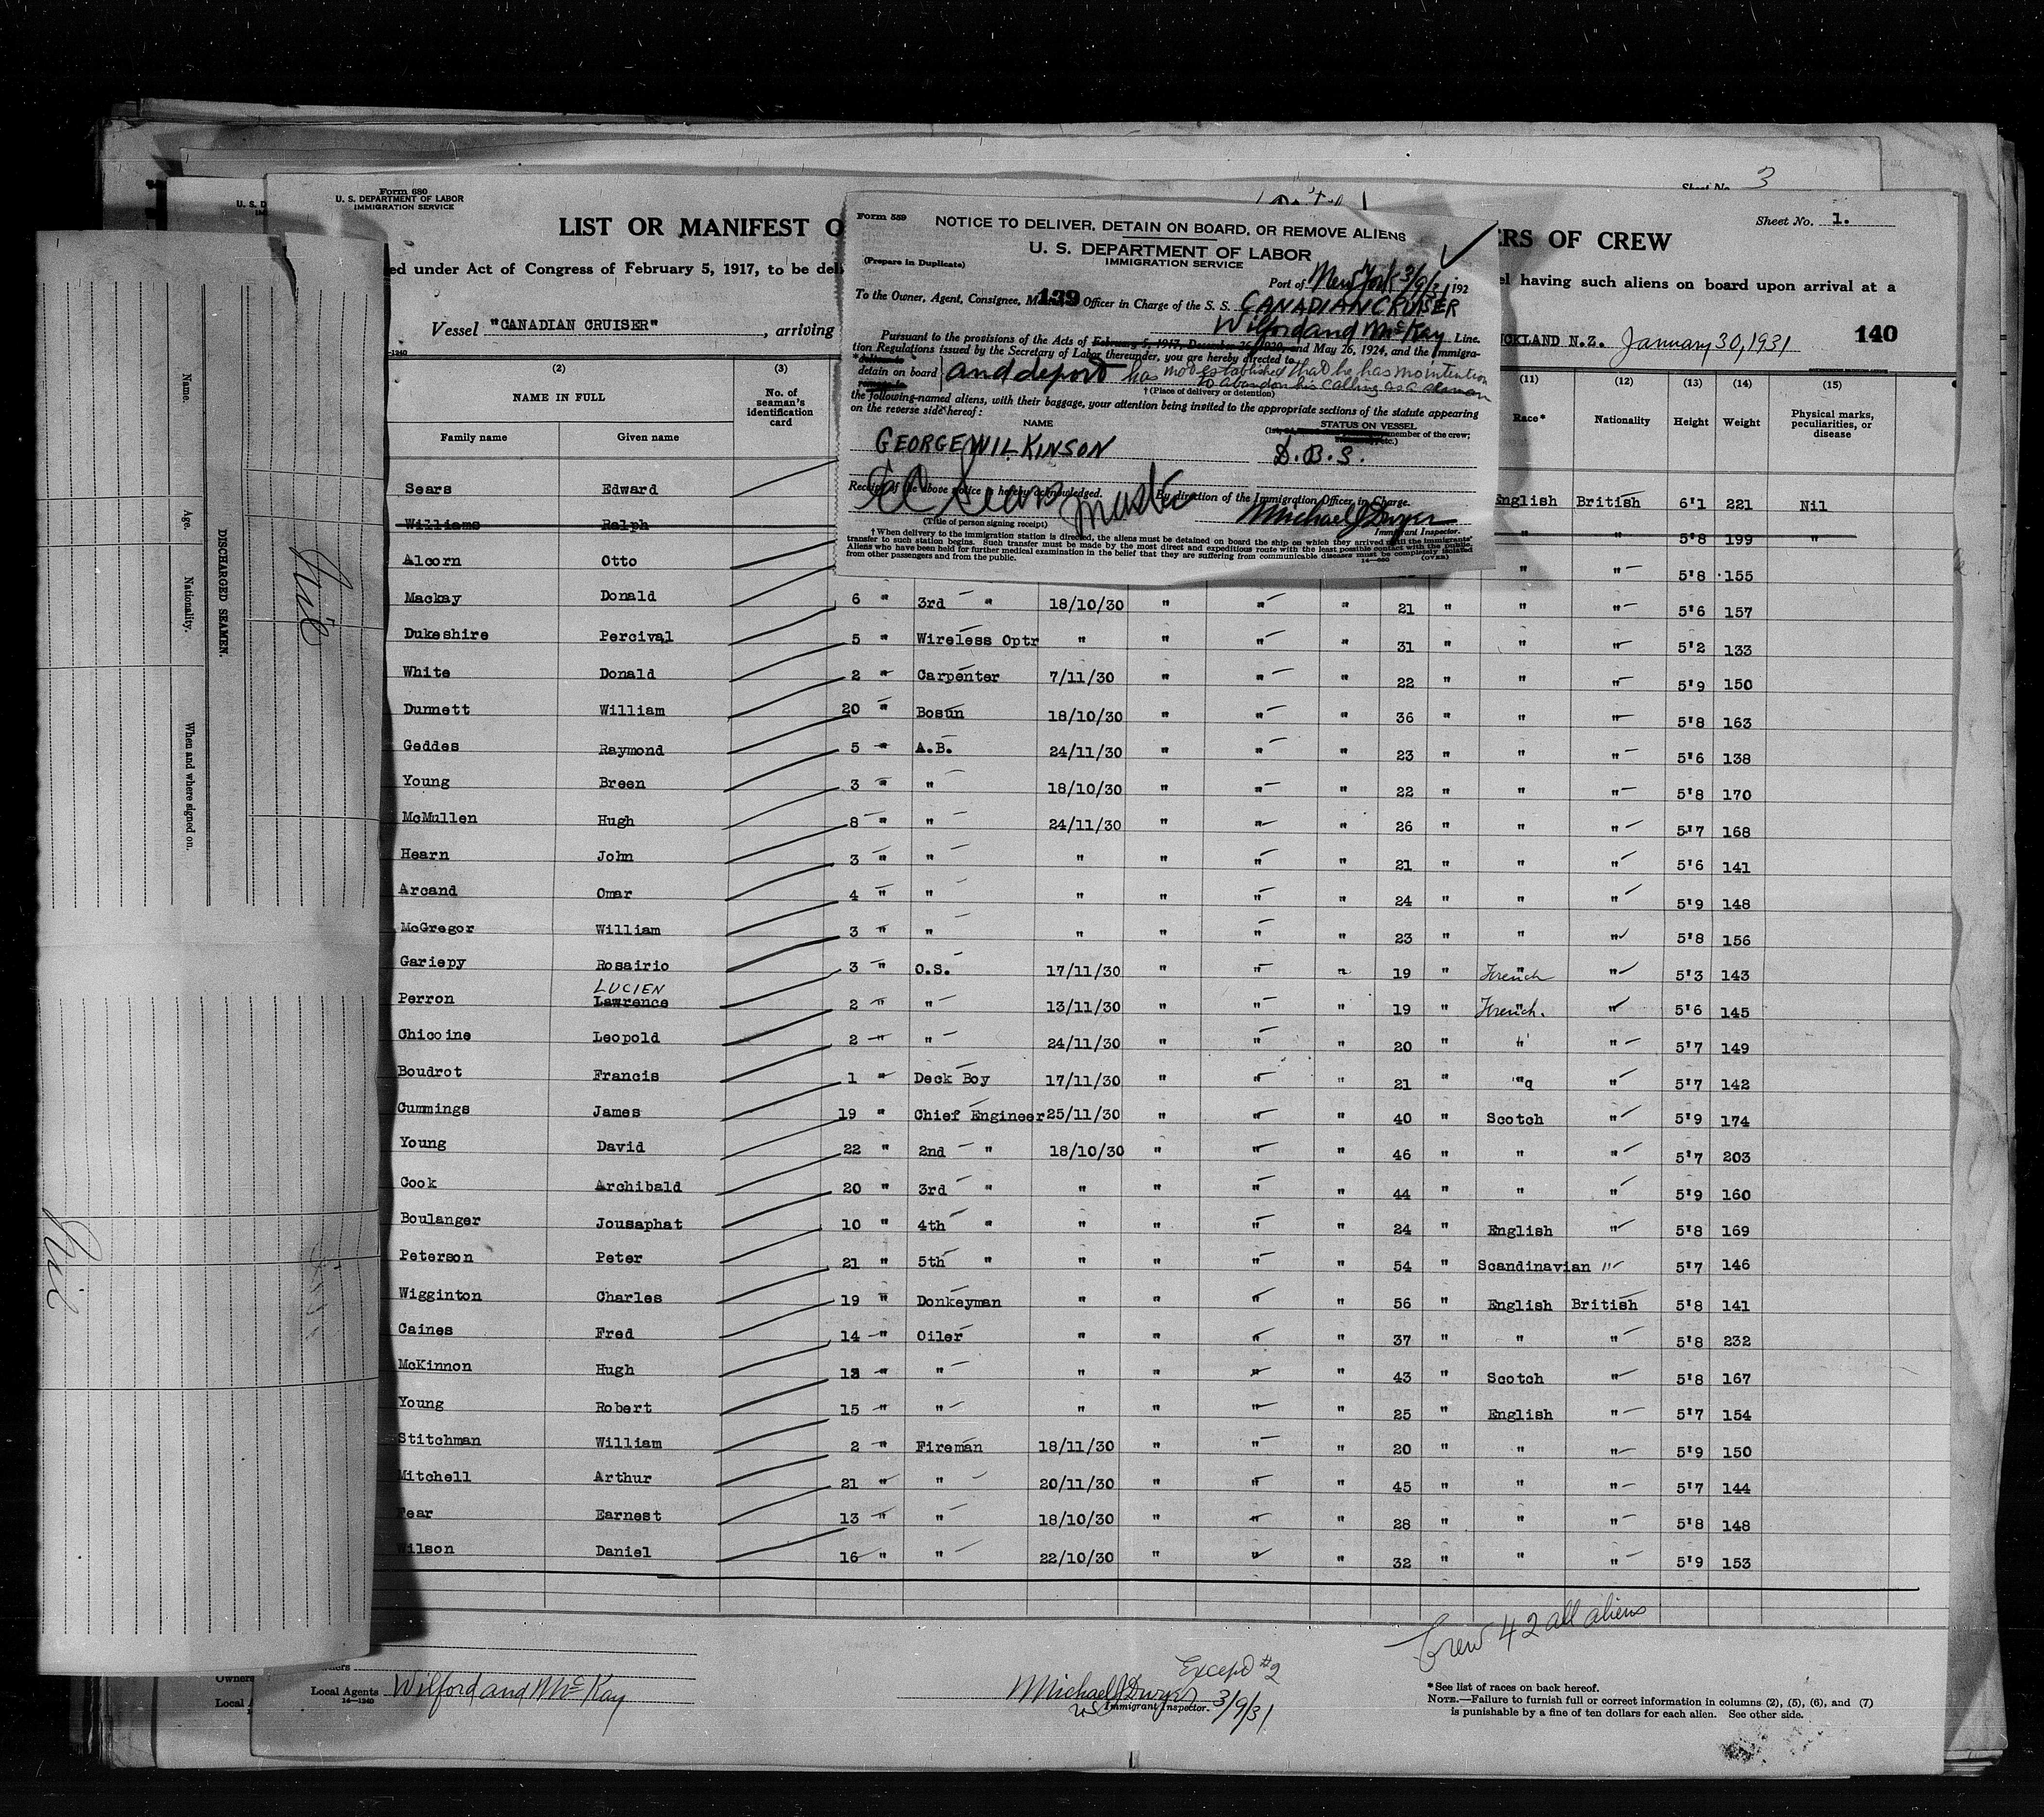 Sheet No. 3
Form 680
U. S. DEPARTMENT OF LABOR
IMMIGRATION SERVICE
Sheet No. 1.
LIST OR MANIFEST O
ERS OF CREW
ed under Act of Congress of February 5, 1917, to be deli
el having such aliens on board upon arrival at a
Vessel "CANADIAN CRUISER", arriving
UCKLAND N.Z. January 30, 1931
140
Form 559
NOTICE TO DELIVER, DETAIN ON BOARD, OR REMOVE ALIENS
U. S. DEPARTMENT OF LABOR
IMMIGRATION SERVICE
(Prepare in Duplicate)
Port of New York 3/9/31, 192
139
To the Owner, Agent, Consignee, M Officer in Charge of the S. S. CANADIAN CRUISER
Wilford and McKay Line.
Pursuant to the provisions of the Acts of February 5, 1917, December 26, 1920, and May 26, 1924, and the Immigra-
tion Regulations issued by the Secretary of Labor thereunder, you are hereby directed to
detain on board and deport has not established that he has no intention
to abandon his calling as a seaman
† (Place of delivery or detention)
the following-named aliens, with their baggage, your attention being invited to the appropriate sections of the statute appearing
on the reverse side hereof:
NAME STATUS ON VESSEL
member of the crew; etc.)
GEORGE WILKINSON D.B.S.
Receipt of the above notice is hereby acknowledged. By direction of the Immigration Officer in Charge.
EC Sears Master Michael J Dwyer
(Title of person signing receipt) Immigrant Inspector.
† When delivery to the immigration station is directed, the aliens must be detained on board the ship on which they arrived until the immigrants'
transfer to such station begins. Such transfer must be made by the most direct and expeditious route with the least possible contact with the public.
Aliens who have been held for further medical examination in the belief that they are suffering from communicable diseases must be completely isolated
from other passengers and from the public. (OVER)
(2) (3) (11) (12) (13) (14) (15)
NAME IN FULL No. of seaman's identification card Race* Nationality Height Weight Physical marks, peculiarities, or disease
Family name Given name
Sears Edward English British 6'1 221 Nil
Williams Ralph " " 5'8 199 "
Alcorn Otto " " 5'8 155
Mackay Donald 6 " 3rd " 18/10/30 " " " 21 " " " 5'6 157
Dukeshire Percival 5 " Wireless Optr " " " " 31 " " " 5'2 133
White Donald 2 " Carpenter 7/11/30 " " " 22 " " " 5'9 150
Dunnett William 20 " Bosun 18/10/30 " " " 36 " " " 5'8 163
Geddes Raymond 5 " A.B. 24/11/30 " " " 23 " " " 5'6 138
Young Breen 3 " " 18/10/30 " " " 22 " " " 5'8 170
McMullen Hugh 8 " " 24/11/30 " " " 26 " " " 5'7 168
Hearn John 3 " " " " " " 21 " " " 5'6 141
Arcand Omar 4 " " " " " " 24 " " " 5'9 148
McGregor William 3 " " " " " " 23 " " " 5'8 156
Gariepy Rosairio 3 " O.S. 17/11/30 " " " 19 " French " 5'3 143
LUCIEN
Perron Lawrence 2 " " 13/11/30 " " " 19 " French. " 5'6 145
Chicoine Leopold 2 " " 24/11/30 " " " 20 " " " 5'7 149
Boudrot Francis 1 " Deck Boy 17/11/30 " " " 21 " " " 5'7 142
Cummings James 19 " Chief Engineer 25/11/30 " " " 40 " Scotch " 5'9 174
Young David 22 " 2nd " 18/10/30 " " " 46 " " " 5'7 203
Cook Archibald 20 " 3rd " " " " " 44 " " " 5'9 160
Boulanger Jousaphat 10 " 4th " " " " " 24 " English " 5'8 169
Peterson Peter 21 " 5th " " " " " 54 " Scandinavian " 5'7 146
Wigginton Charles 19 " Donkeyman " " " " 56 " English British 5'8 141
Caines Fred 14 " Oiler " " " " 37 " " " 5'8 232
McKinnon Hugh " " " " " " 43 " Scotch " 5'8 167
Young Robert 15 " " " " " " 25 " English " 5'7 154
Stitchman William 2 " Fireman 18/11/30 " " " 20 " " " 5'9 150
Mitchell Arthur 21 " " 20/11/30 " " " 45 " " " 5'7 144
Fear Earnest 13 " " 18/10/30 " " " 28 " " " 5'8 148
Wilson Daniel 16 " " 22/10/30 " " " 32 " " " 5'9 153
Crew 42 all aliens
Except #2
Local Agents Wilford and McKay
Michael J Dwyer 3/9/31
US Immigrant Inspector.
* See list of races on back hereof.
NOTE.—Failure to furnish full or correct information in columns (2), (5), (6), and (7)
is punishable by a fine of ten dollars for each alien. See other side.
Owners
Local A
DISCHARGED SEAMEN.
Name. Age. Nationality. When and where signed on.
Nil
Nil